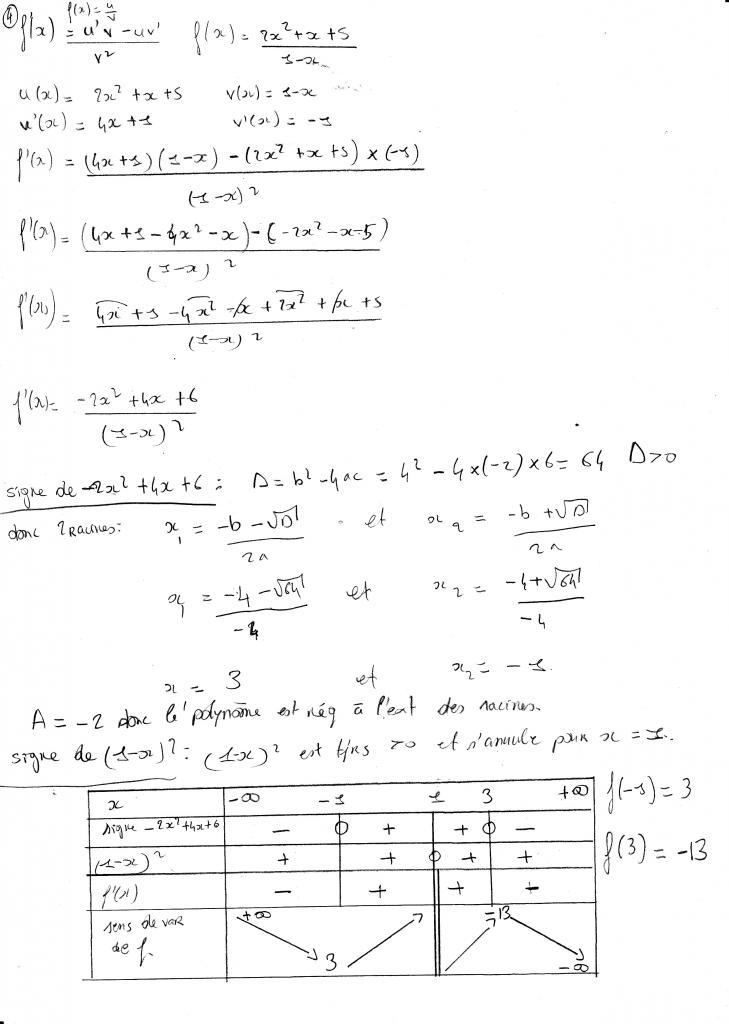 ④ f(x) = u/v
f'(x) = (u'v - uv')/v² f(x) = (2x² + x + 5)/(1-x)
u(x) = 2x² + x + 5 v(x) = 1-x
u'(x) = 4x + 1 v'(x) = -1
f'(x) = ((4x+1)(1-x) - (2x² + x + 5) × (-1))/(1-x)²
f'(x) = ((4x + 1 - 4x² - x) - (-2x² - x - 5))/(1-x)²
f'(x) = (4x + 1 - 4x² - x + 2x² + x + 5)/(1-x)²
f'(x) = (-2x² + 4x + 6)/(1-x)²
signe de -2x² + 4x + 6 : Δ = b² - 4ac = 4² - 4×(-2)×6 = 64 Δ>0
donc 2 Racines: x₁ = (-b - √Δ)/2a et x₂ = (-b + √Δ)/2a
x₁ = (-4 - √64)/-4 et x₂ = (-4 + √64)/-4
x = 3 et x₂ = -1.
A = -2 donc le polynôme est nég à l'ext des racines.
signe de (1-x)² : (1-x)² est tjrs >0 et s'annule pour x = 1.
x -∞ -1 1 3 +∞ f(-1) = 3
signe -2x²+4x+6 - 0 + + 0 -
(1-x)² + + 0 + + f(3) = -13
f'(x) - + + -
sens de var +∞ -13
de f. 3 -∞